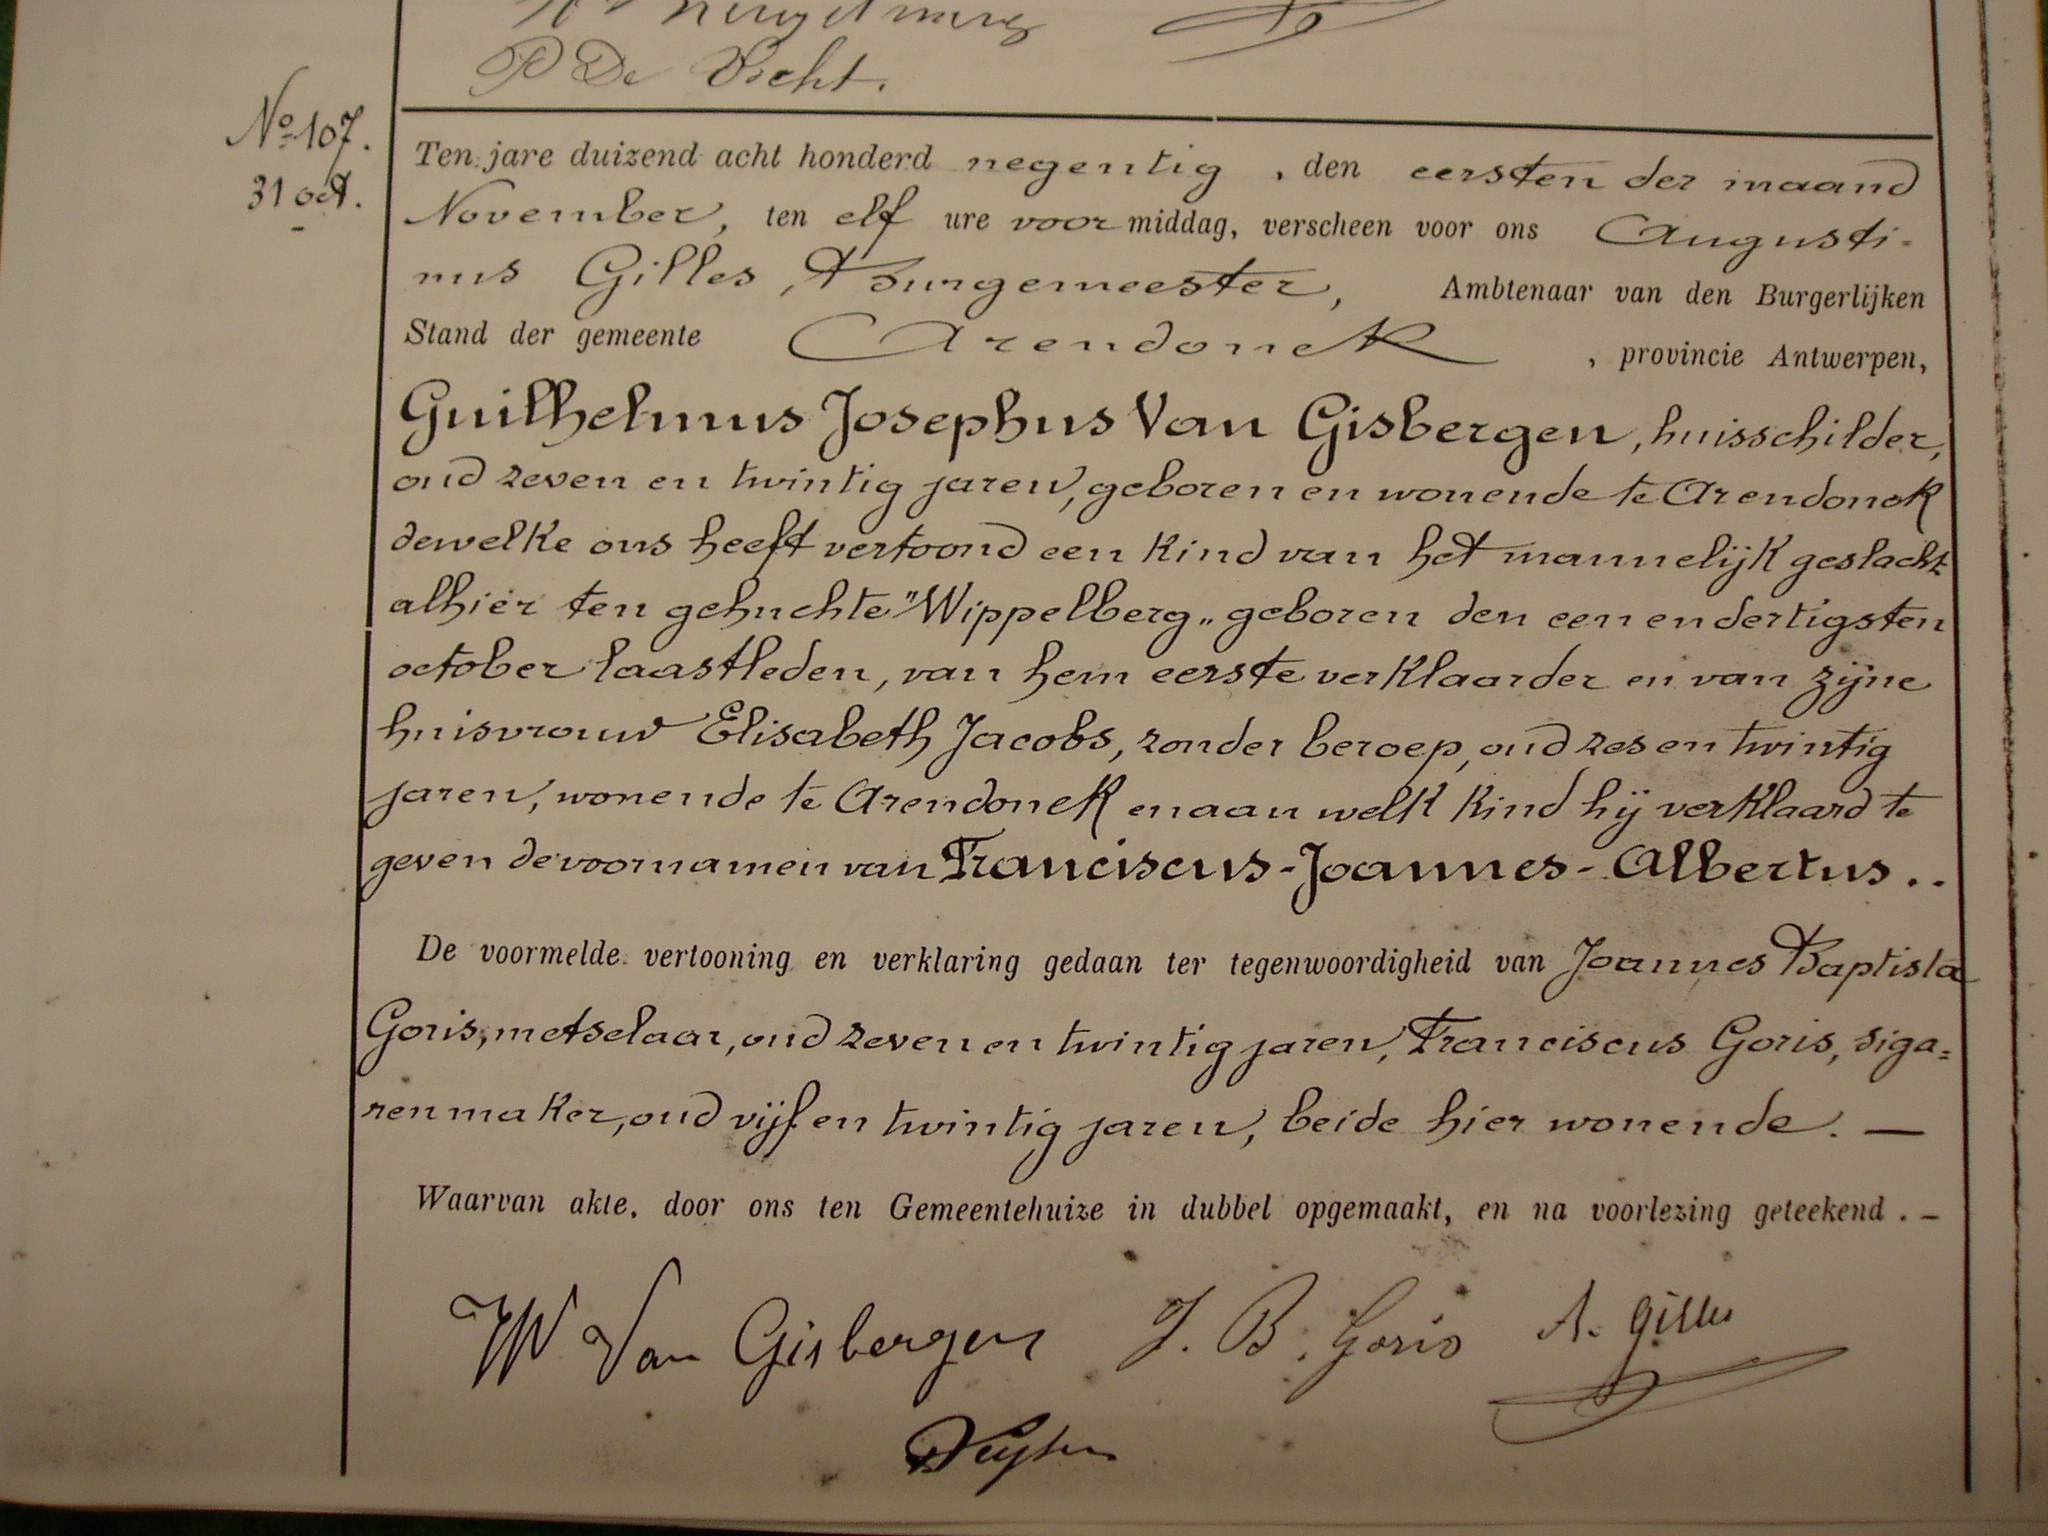 P De Vocht.
No 107.
31 oct.
Ten jare duizend acht honderd negentig, den eersten der maand
November, ten elf ure voormiddag, verscheen voor ons Augusti-
nus Gilles, Burgemeester, Ambtenaar van den Burgerlijken
Stand der gemeente Arendonck, provincie Antwerpen,
Guilhelmus Josephus Van Gisbergen, huisschilder,
oud zeven en twintig jaren, geboren en wonende te Arendonck
dewelke ons heeft vertoond een kind van het mannelijk geslacht
alhier ten gehuchte "Wippelberg" geboren den een en dertigsten
october laastleden, van hem eerste verklaarder en van zijne
huisvrouw Elisabeth Jacobs, zonder beroep, oud zes en twintig
jaren, wonende te Arendonck en aan welk kind hij verklaard te
geven de voornamen van Franciscus-Joannes-Albertus..
De voormelde vertooning en verklaring gedaan ter tegenwoordigheid van Joannes Baptista
Goris, metselaar, oud zeven en twintig jaren, Franciscus Goris, siga=
renmaker, oud vijf en twintig jaren, beide hier wonende. —
Waarvan akte, door ons ten Gemeentehuize in dubbel opgemaakt, en na voorlezing geteekend. —
W Van Gisbergen J. B. Goris A. Gilles